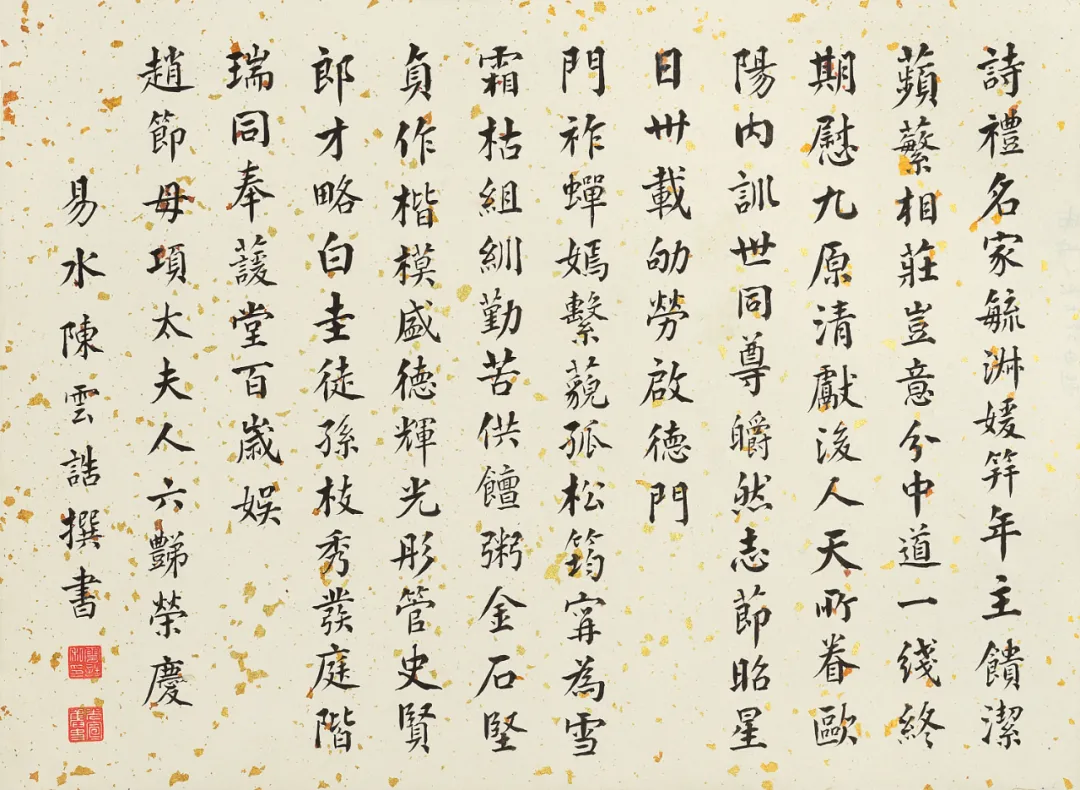 詩禮名家毓淋媛笄年主饋潔
蘋蘩相莊豈意分中道一綫終
期慰九原清獻後人天所眷歐
陽內訓世同尊皭然志節昭星
日卅載劬勞啟德門
門祚蟬嫣繫藐孤松筠甯為雪
霜枯組紃勤苦供饘粥金石堅
貞作楷模盛德輝光彤管史賢
郎才略白圭徒孫枝秀發庭階
瑞同奉蘐堂百歲娛
趙節母項太夫人六豒榮慶
易水陳雲誥撰書